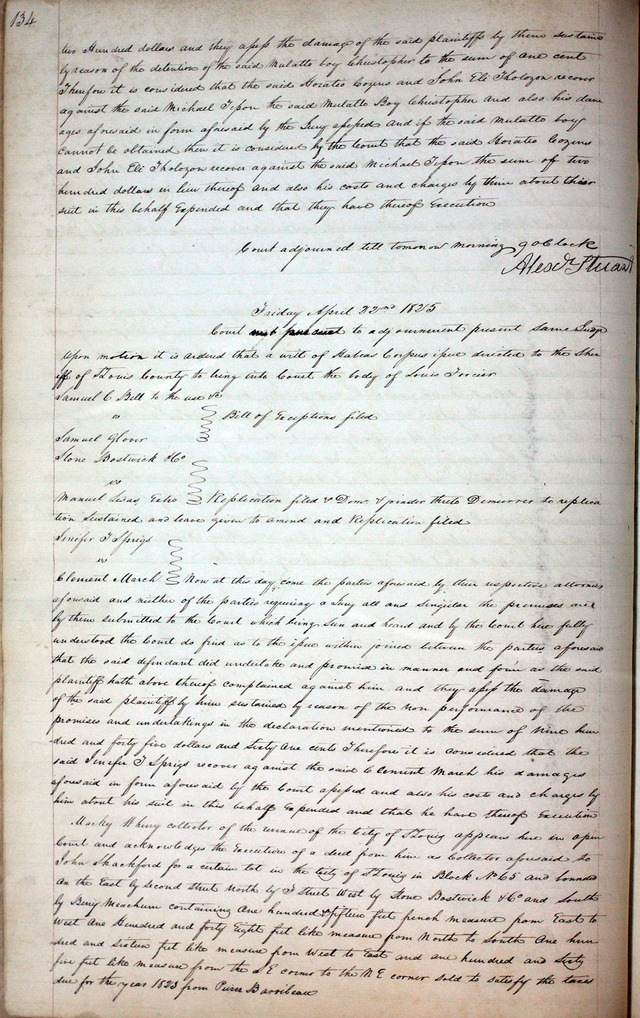 134
two Hundred dollars and they assess the damage of the said plaintiffs by them sustained
by reason of the detention of the said Mulatto boy Christopher to the sum of one cent
Therefore it is considered that the said Horatio Cozens and John Eli Tholozan recover
against the said Michael Tesson the said Mulatto Boy Christopher and also his dam
ages aforesaid in form aforesaid by the Jury assessed and if the said mulatto boy
cannot be obtained then it is considered by the Court that the said Horatio Cozens
and John Eli Tholozan recover against the said Michael Tesson the sum of two
hundred dollars in lieu thereof and also his costs and charges by them about their
suit in this behalf Expended and that they have thereof Execution
Court adjourned till tomorrow morning 9 oClock
Alexdr. Stuart
Friday April 22nd 1825
Court to adjournment present same Judge
Upon motion it is ordered that a writ of Habeas Corpus issue directed to the Sher
iff of St Louis County to bring into Court the body of Louis
Samuel C Bell to the use &c
vs
Bill of Exceptions filed
Samuel Glover
Stone Bostwick & Co
vs
Manuel Lisas, Exho Replication filed & Dem. & joinder thereto Demurrer to replica
tion Sustained and leave given to amend and Replication filed
Jenifer T Sprigs
vs
Clement March Now at this day come the parties aforesaid by their respective attornies
aforesaid and neither of the parties requiring a Jury all and singular the premises are
by them submitted to the Court which being seen and heard and by the Court here fully
understood the Court do find as to the issue within joined between the parties aforesaid
that the said defendant did undertake and promise in manner and form as the said
plaintiff hath above thereof complained against him and they assess the damage
of the said plaintiff by him sustained by reason of the non performance of the
promises and undertakings in the declaration mentioned to the sum of Nine hun
dred and forty five dollars and Sixty One cents Therefore it is considered that the
said Jenifer T Sprigs recover against the said Clement March his damages
aforesaid in form aforesaid by the Court assessed and also his costs and charges by
him about his suit in this behalf Expended and that he have thereof Execution
Mackey Wherry collector of the revenue of the City of St Louis appears here in open
Court and acknowledges the Execution of a deed from him as Collector aforesaid to
John Shackford for a certain lot in the City of St Louis in Block No 65 and bounded
on the East by second street North by J street West by Stone Bostwick & Co and South
by Berry Meachum containing One hundred & fifteen feet french measure from East to
West One Hundred and forty Eight feet like measure from North to South One hun
dred and sixteen feet like measure from West to East and one hundred and sixty
five feet like measure from the S E corner to the N E corner sold to satisfy the taxes
due for the year 1823 from Pierre Barribeau